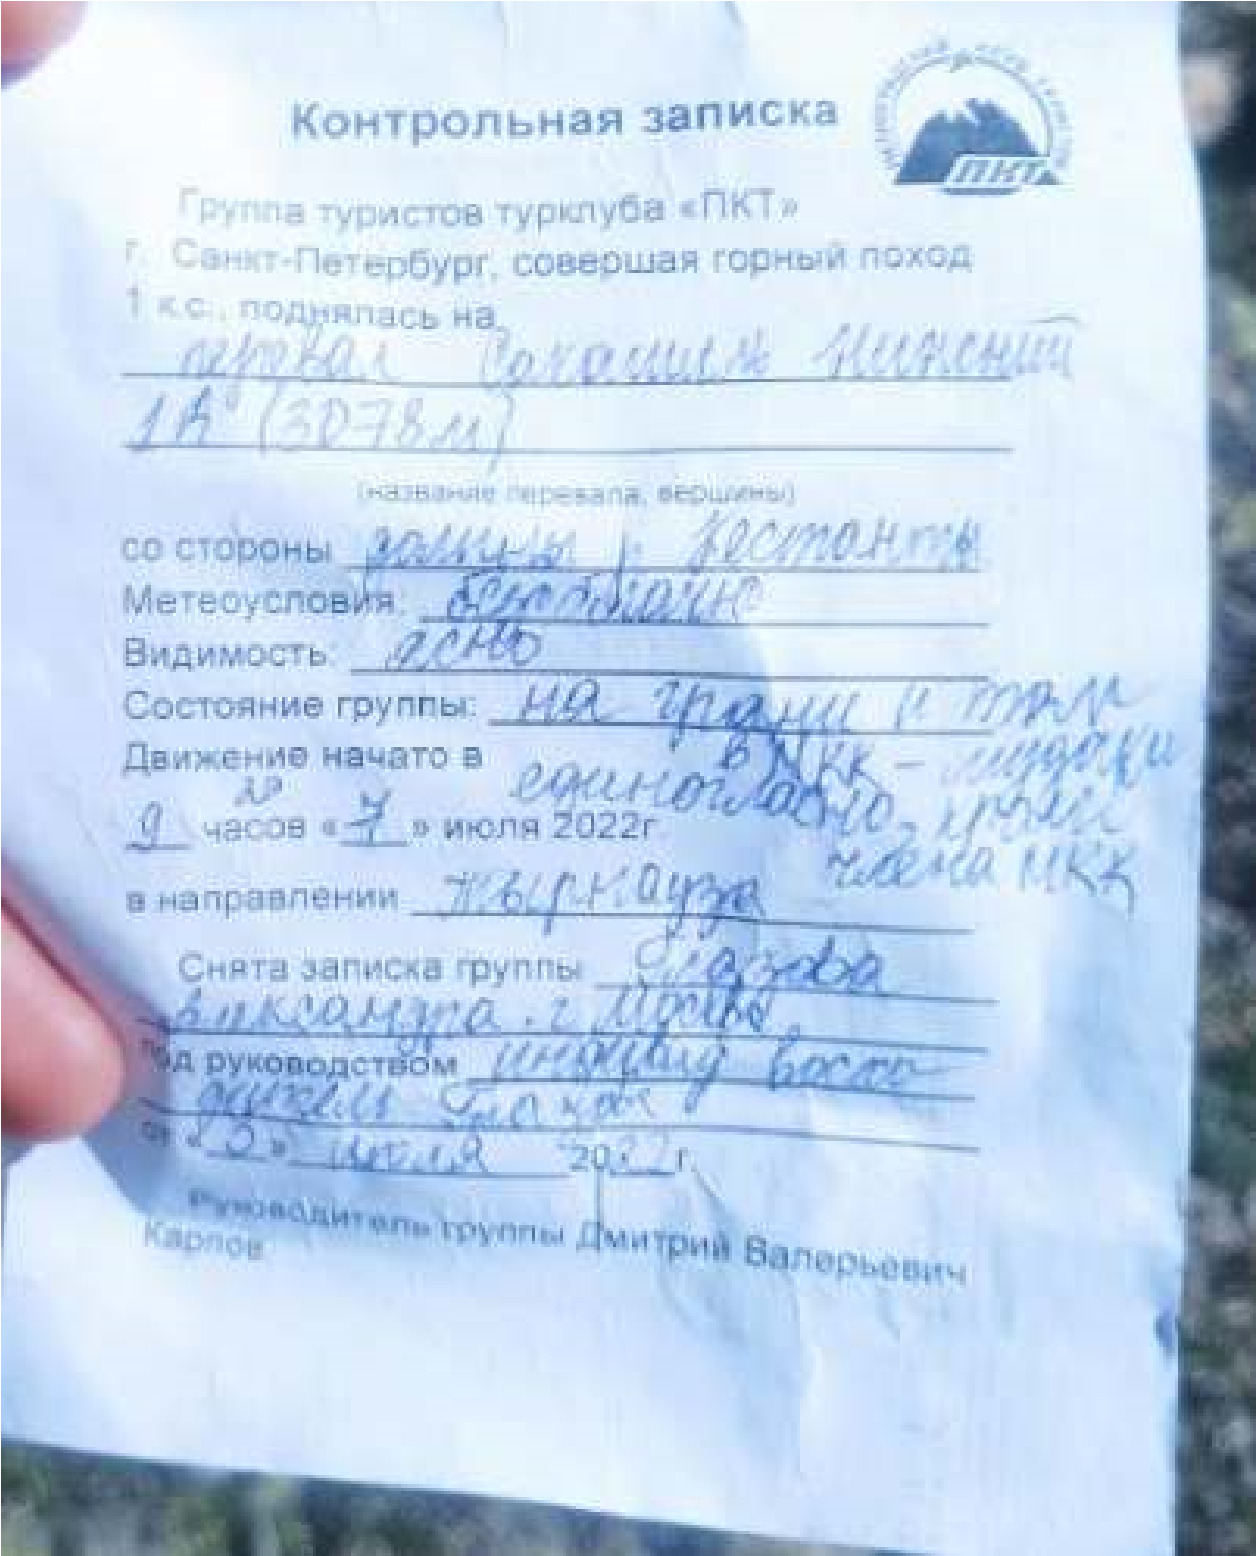 Контрольная записка
ПКТ
Группа туристов турклуба «ПКТ»
г. Санкт-Петербург, совершая горный поход
1 к.с., поднялась на
перевал Сакашиль Нижний
(3078м)
(название перевала, вершины)
со стороны долины р. Кестанты
Метеоусловия:
Видимость: ясно
Состояние группы: на грани
Движение начато в
в МКК – мудаки
единогласно, кроме
члена МКК
9 часов « 7 » июля 2022г
в направлении Тырныауза
Снята записка группы Глазова
Александра г. Москва
под руководством индивид восхо-
Глазов
от « » июля 2022 г.
Руководитель группы Дмитрий Валерьевич
Карпов